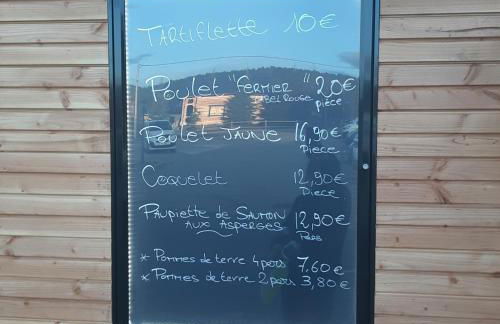 TARTIFLETTE 10€
POULET "FERMIER" 20€
LABEL ROUGE pièce
POULET JAUNE 16,90€
PIECE
COQUELET 12,90€
PIECE
PAUPIETTE de SAUMON 12,90€
AUX ASPERGES
* POMMES de terre 4 pers 7.60€
* POMMES de terre 2 pers 3,80€